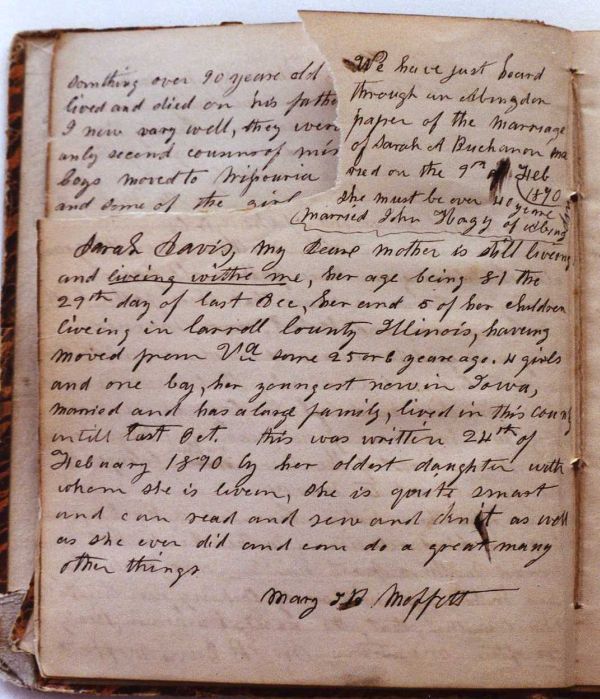 somthing over 90 yeare old
lived and died on his fathe
I new vary well, they were
only second cousns of mis
boys moved to Missouria
and some of the girl
We have just heard
through an Abingdon
paper of the marriage
of Sarah A Buchanon ma
ried on the 9th of Feb
1890
she must be over 40 yeare
married John Hagy of Abing
Sarah Davis, my Deare mother is still liveing
and liveing withe me, her age being 81 the
29th day of last Dec, her and 5 of her children
liveing in Carroll County Illinois, haveing
moved from Va some 25 or 6 yeare ago. 4 girls
and one boy, her youngest now in Iowa,
married and has a large family, lived in this county
untill last Oct. this was written 24th of
Febuary 1890 by her oldest daughter with
whom she is livem, she is quite smart
and can read and sew and knit as well
as she ever did and can do a great many
other things
Mary Moffett